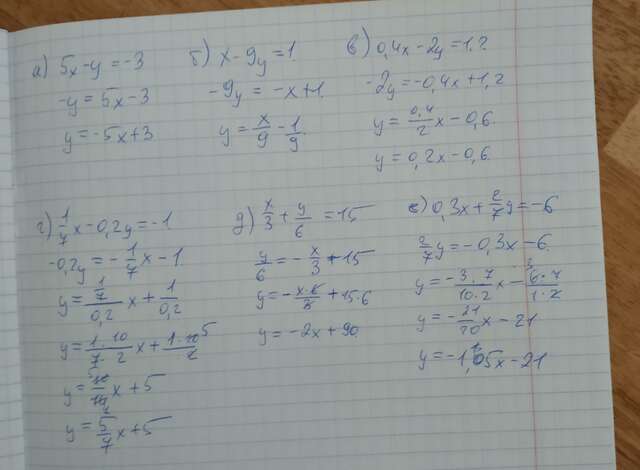 а) 5x-y=-3
-y=5x-3
y=-5x+3
б) x-9y=1
-9y=-x+1
y=x/9-1/9
в) 0,4x-2y=1,2
-2y=-0,4x+1,2
y=0,4/2x-0,6
y=0,2x-0,6
г) 1/7x-0,2y=-1
-0,2y=-1/7x-1
y=1/7/0,2x+1/0,2
y=1·10/7·2x+1·10/2 5
y=10/14x+5
y=5/7x+5
д) x/3+y/6=15
y/6=-x/3+15
y=-x·6/3+15·6
y=-2x+90
е) 0,3x+2/7y=-6
2/7y=-0,3x-6
y=-3·7/10·2x-6·7/1·2
y=-21/20x-21
y=-1,05x-21